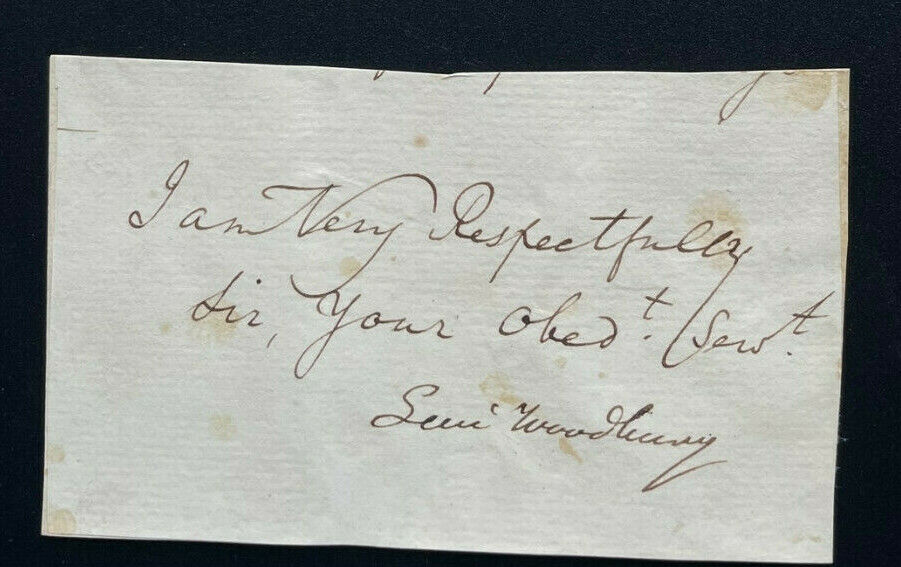 I am Very Respectfully
Sir, Your Obedt. Servt.
Levi Woodbury